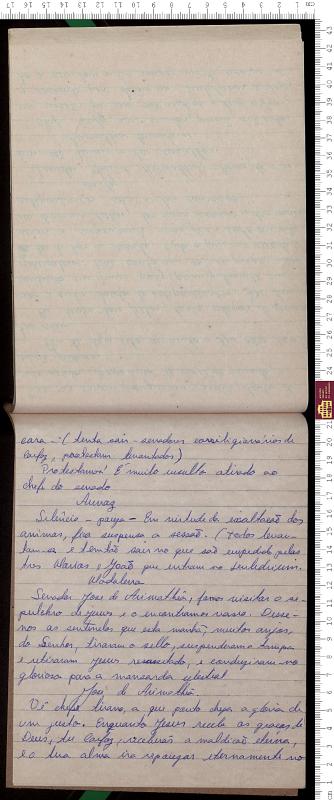 cara - (tenta sair - senadores correligionários de
Caifaz, protestam levantados)
Protestamos! É muito insulto atirado ao
chefe do senado
Anaz
Silêncio - pausa - Em virtude da exaltação dos
animos, fica suspensa a sessão. (Todos levan-
tam-se e tentão sair no que são empedido pelas
tres Marias e João que entram no
Madalena
Senador José de Arimathéa, fomos visitar o se-
pulchro de Jesus e o encontramos vasio. Disse-
nos as sentinelas que esta manhã, muitos anjos,
do Senhor, tiraram o sello, suspenderam a tampa
e retiraram Jesus resuscitado, e conduziram-no
glorioso para a mansarda celestial
José de Arimathéa.
Vê chefe tirano, a que ponto chega a gloria de
um justo. Enquanto Jesus receta as graças de
Deus, tu Caifaz, receberás a maldição eterna,
e a tua alma ira repousar eternamente no